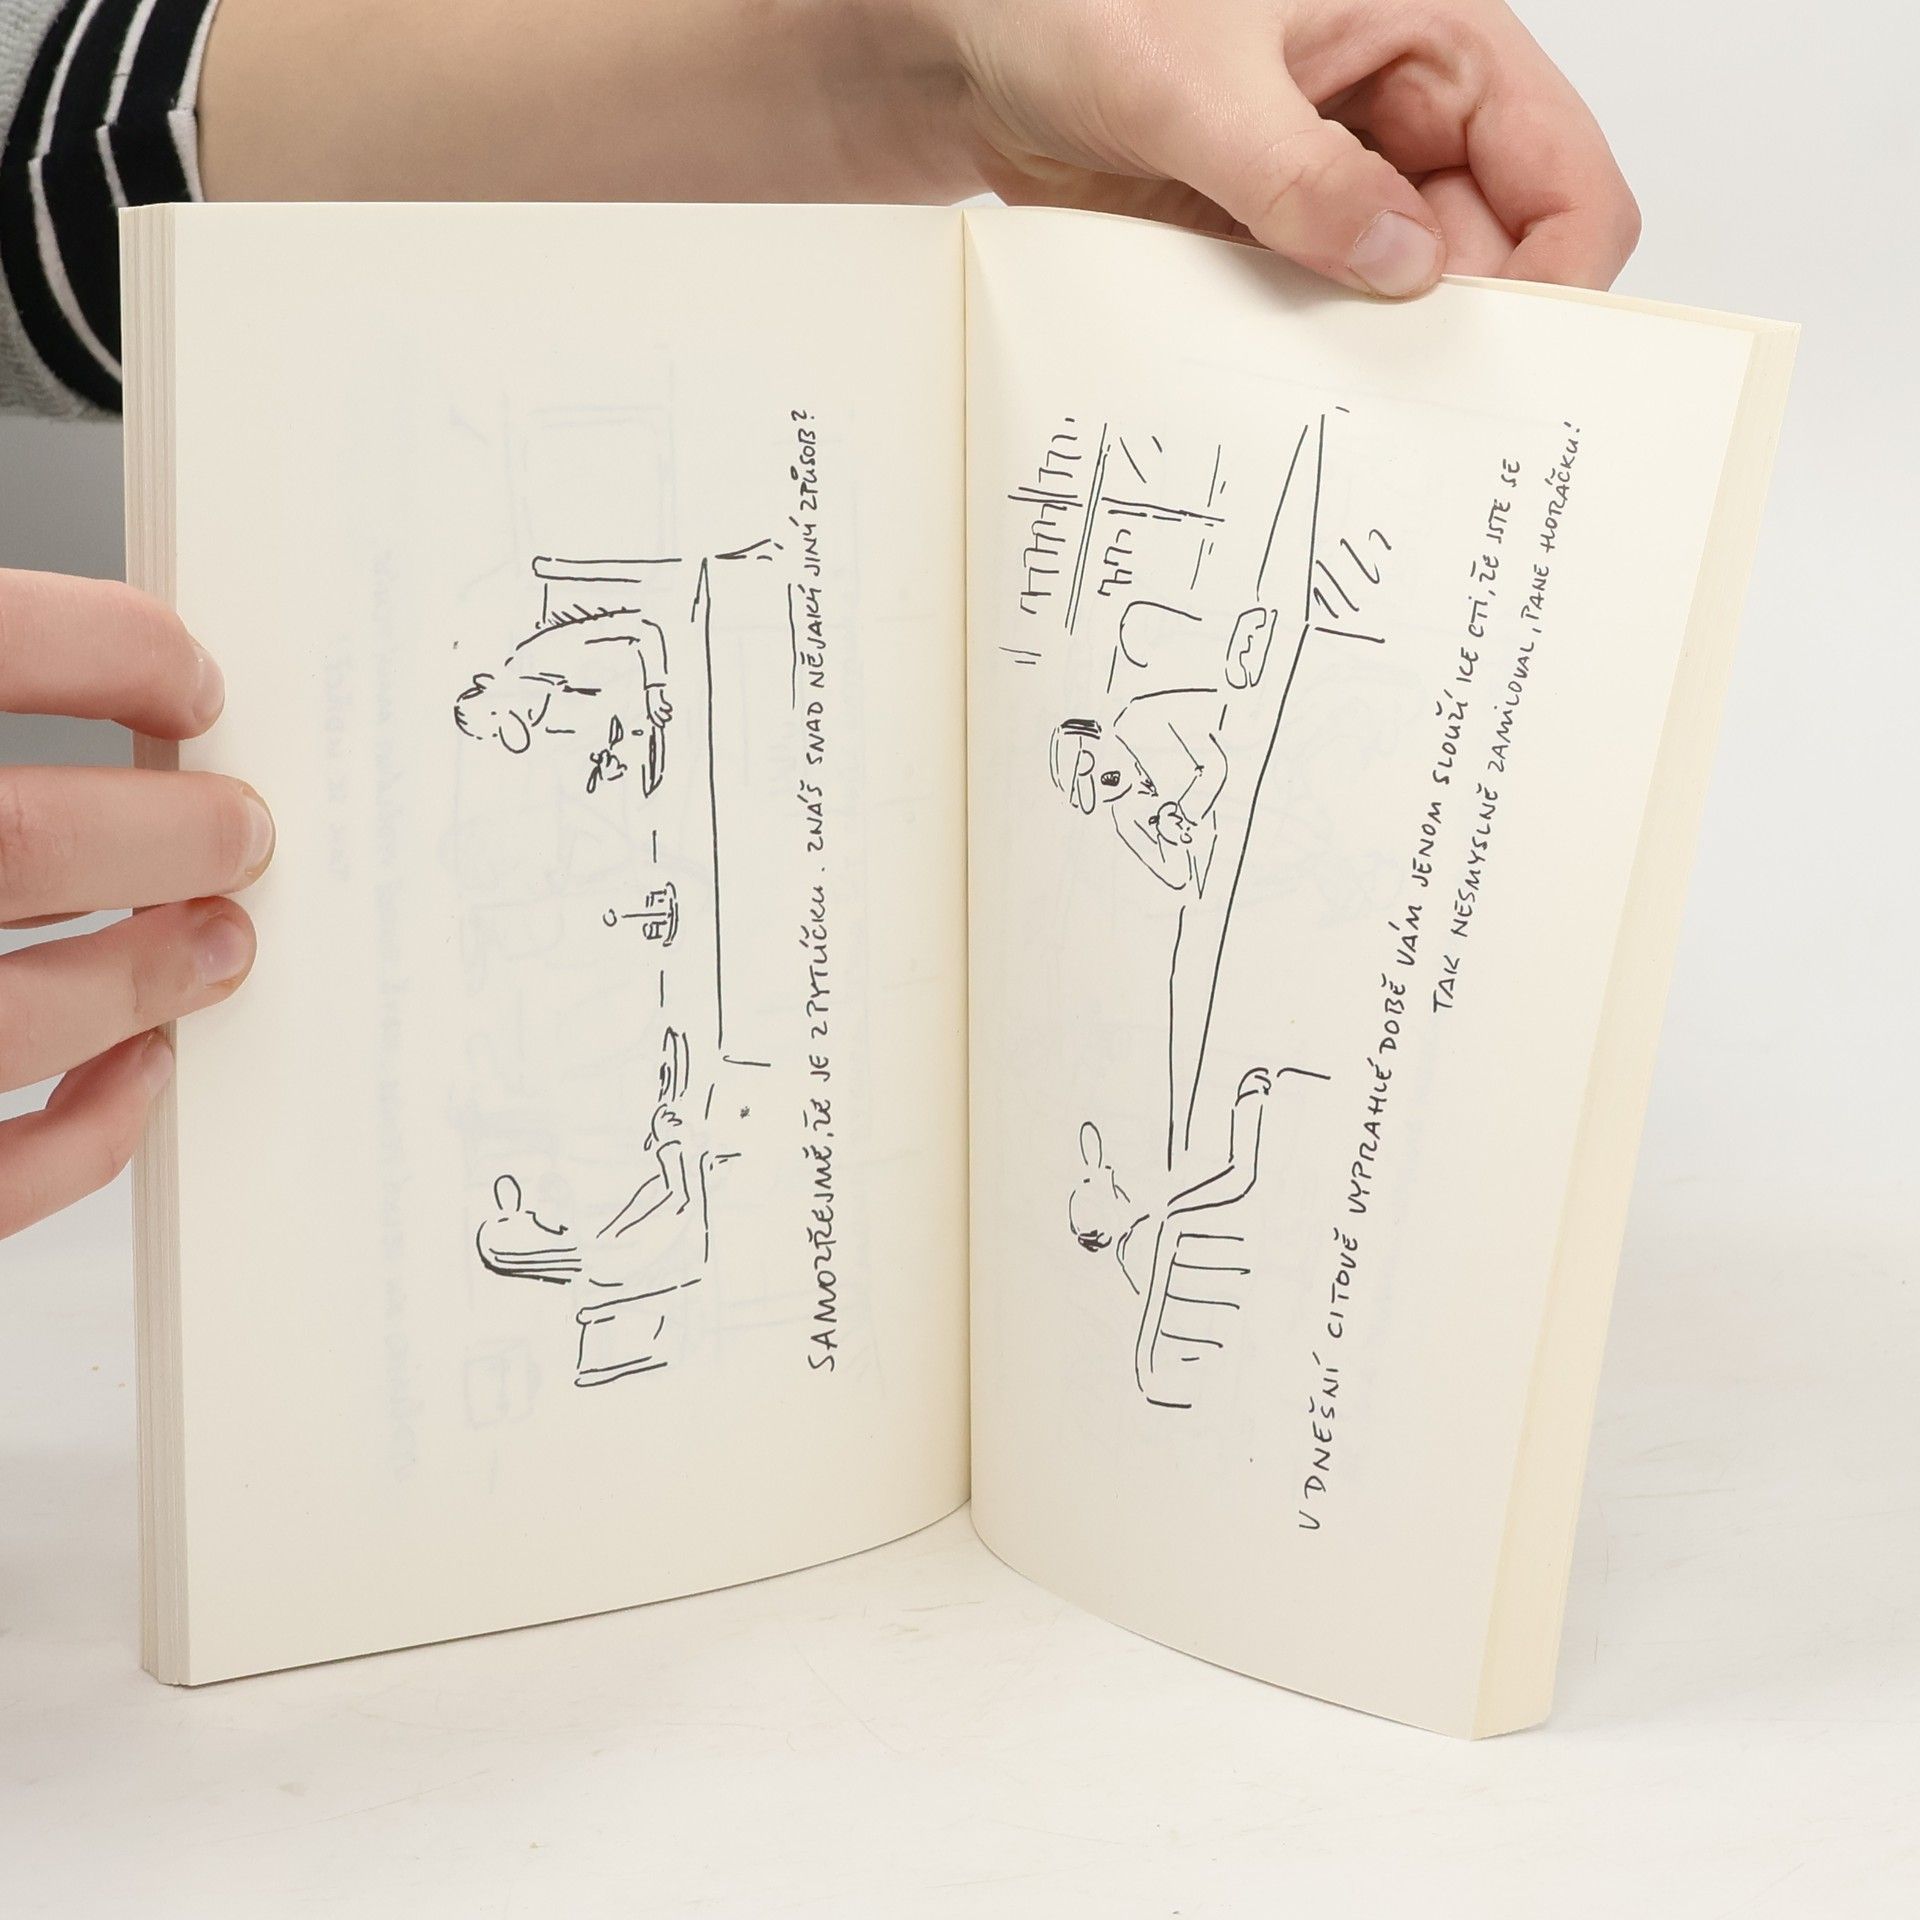 SAMOZŘEJMĚ, ŽE JE Z PYTLÍČKU. ZNÁŠ SNAD NĚJAKÝ JINÝ ZPŮSOB?
V DNEŠNÍ CITOVĚ VYPRAHLÉ DOBĚ VÁM JENOM SLOUŽÍ KE CTI, ŽE JSTE SE
TAK NESMYSLNĚ ZAMILOVAL, PANE HORÁČKU!